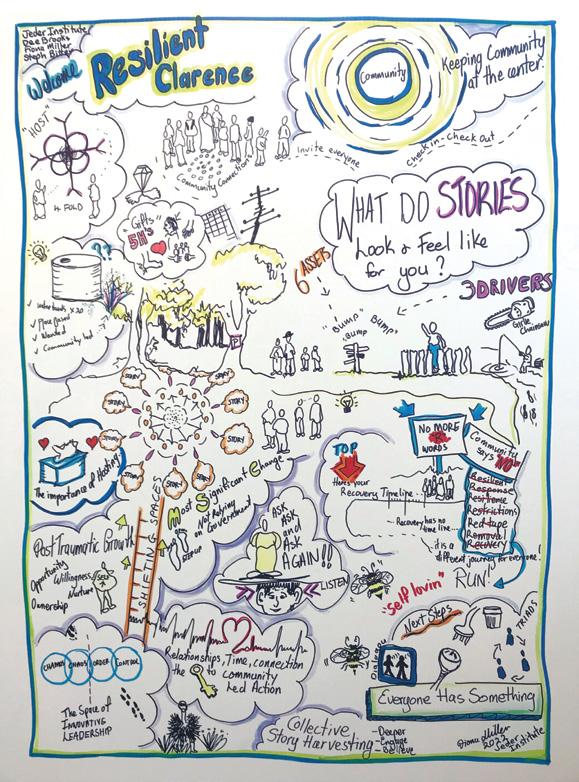 Jeder Institute
Dee Brooks
Fiona Miller
Welcome
Resilient
Clarence
Community
Keeping Community
at the center.
"HOST
4 FOLD
Community Connections
Invite everyone
check in-check out
"Gifts"
5H's
??
WHAT DO STORIES
Look & Feel like
for you?
6 ASSETS
3 DRIVERS
"Bump" Bump"
Bump
Girlie
Chainsaw
✓ Place Based
✓ Wanted
✓ Community led
STORY
STORY
STORY
STORY
STORY
STORY
STORY
STORY
STORY
The importance of Hosting.
Most Significant Change
Not Relying
on Government
STEP UP
NO MORE
R
WORDS
Community
says NO
Resilient
Response
Resilience
Restrictions
Red tape
Removal
Recovery
RUN!
TOP
DOWN
Here's your
Recovery Timeline...
...Recovery has no
time line...
it is a
different journey for everyone!
Post Traumatic Growth
Opportunity
Willingness
Nurture
Self
Ownership
SHIFTING SPACES
ASK
ASK
and
Ask
AGAIN!!
LISTEN
"Self lovin"
Next Steps
TRIADS
Dialogue
Everyone Has Something
CHAMOS
CHAOS
ORDER
CONTROL
The Space of
INNOVATING
LEADERSHIP
Relationships, Time, connection
the to community
Led Action
Collective
Story Harvesting
-Deeper
-Engage
-Believe
Fiona Miller
2022
Jeder
Institute